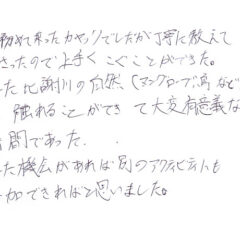 初めて乗ったカヤックでしたが丁寧に教えて
さったので上手くこぐことができた。
た比謝川の自然(マングローブ、鳥など
触れることができて大変有意義な
間であった.
た機会があれば別のアクティビティにも
加できればと思いました。